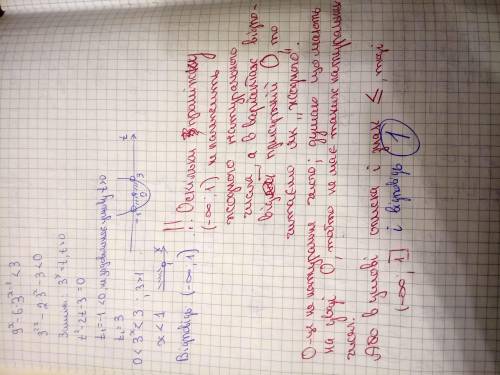 9ˣ - 6·3ˣ⁻¹ < 3
3²ˣ - 2·3ˣ - 3 < 0
Заміна: 3ˣ = t, t > 0
t² - 2t - 3 = 0
t₁ = -1 < 0 не задовольняє умову t > 0
t₂ = 3
0 < 3ˣ < 3 ; 3 > 1
x < 1
Відповідь (-∞, 1)
-1 3 t
1 x
!! Оскільки проміжку
(-∞, 1) не належить
жодного натурального
числа, а в варіантах відпо-
віді присутній 0, то
читаємо як "жодного".
0 - це не натуральне число; думаю що мають
на увазі 0, тобто не має таких натуральних
чисел.
Або в умові описка і знак ≤, тоді
(-∞, 1] і відповідь 1